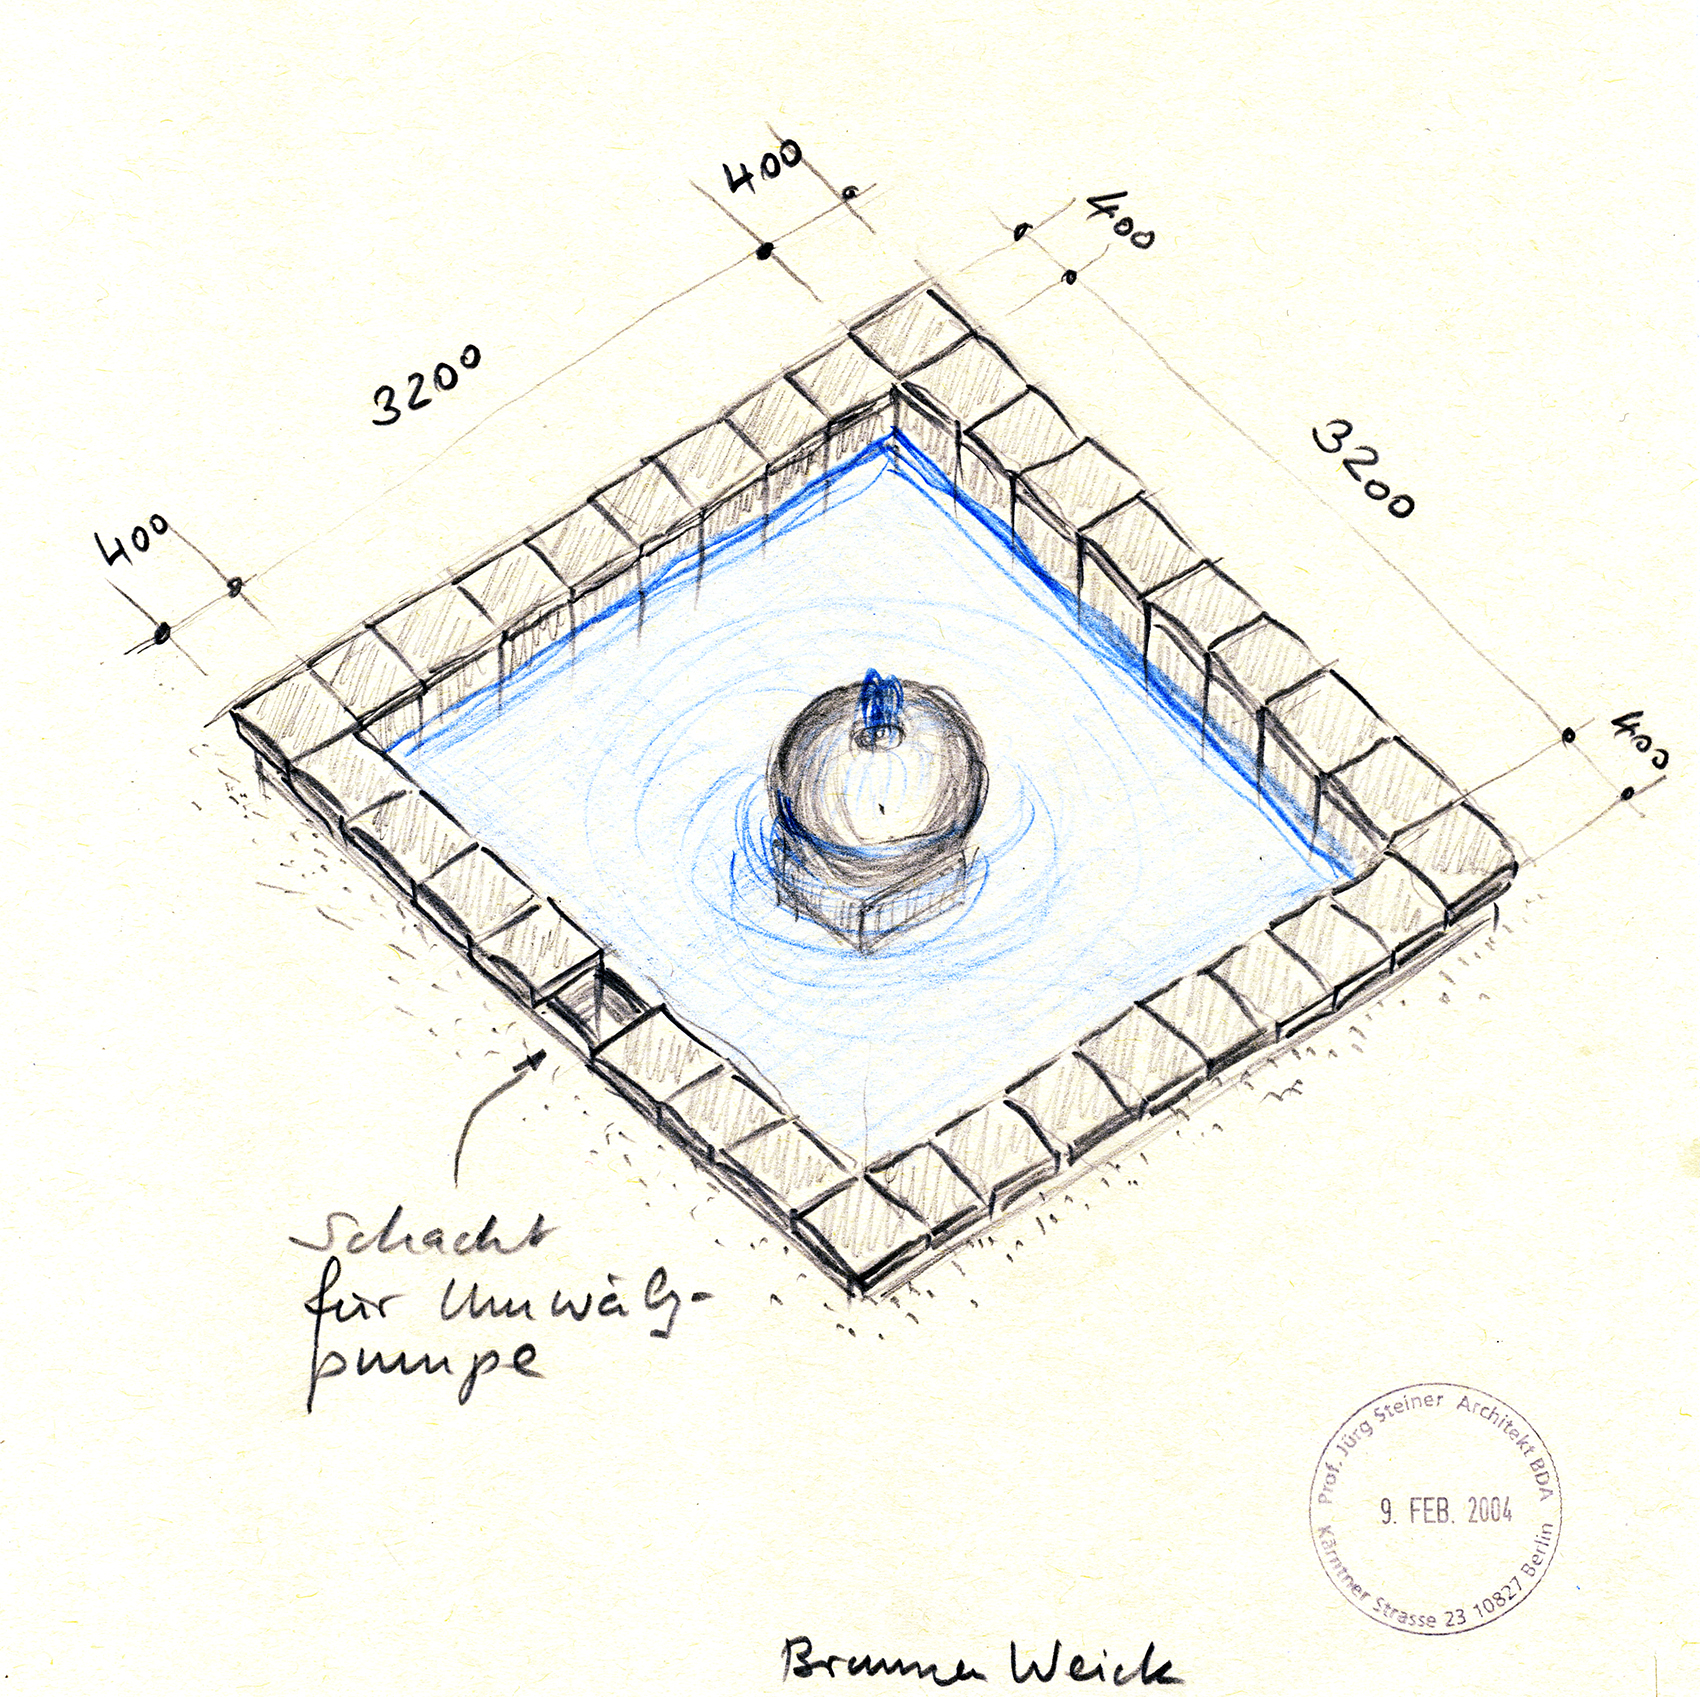 400
400
3200
3200
400
400
Schacht
für Umwälz-
pumpe
Prof. Jürg Steiner Architekt BDA
9. FEB. 2004
Kärntner Strasse 23 10827 Berlin
Brunnen Weick